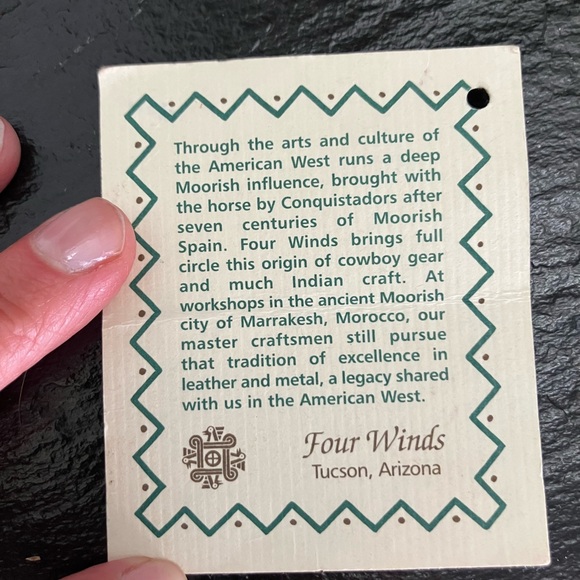 Through the arts and culture of
the American West runs a deep
Moorish influence, brought with
the horse by Conquistadors after
seven centuries of Moorish
Spain. Four Winds brings full
circle this origin of cowboy gear
and much Indian craft. At
workshops in the ancient Moorish
city of Marrakesh, Morocco, our
master craftsmen still pursue
that tradition of excellence in
leather and metal, a legacy shared
with us in the American West.
Four Winds
Tucson, Arizona